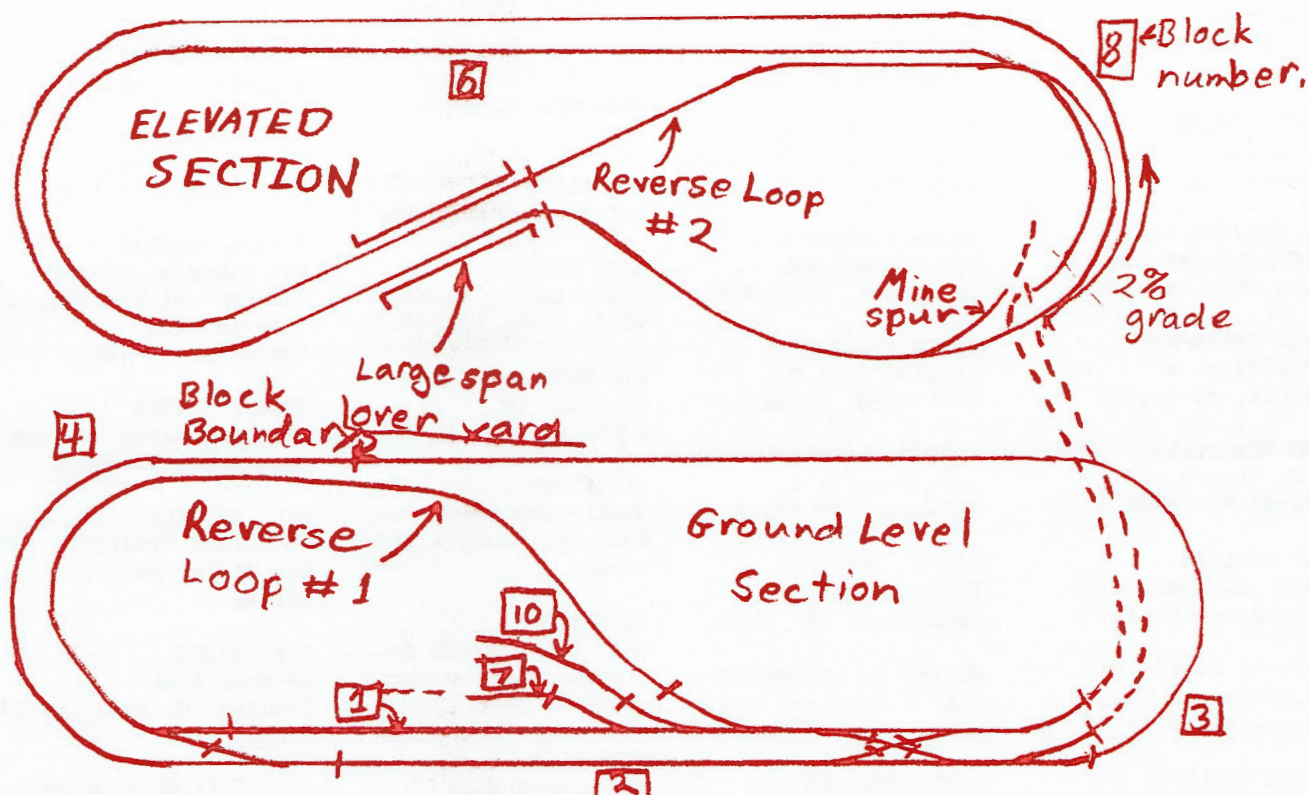 8 ←Block
number.
6
ELEVATED
SECTION
Reverse Loop
#2
Mine
spur→
2%
grade
Large span
over yard
Block
Boundary
4
Reverse
Loop #1
Ground Level
Section
10
7
1
3
2